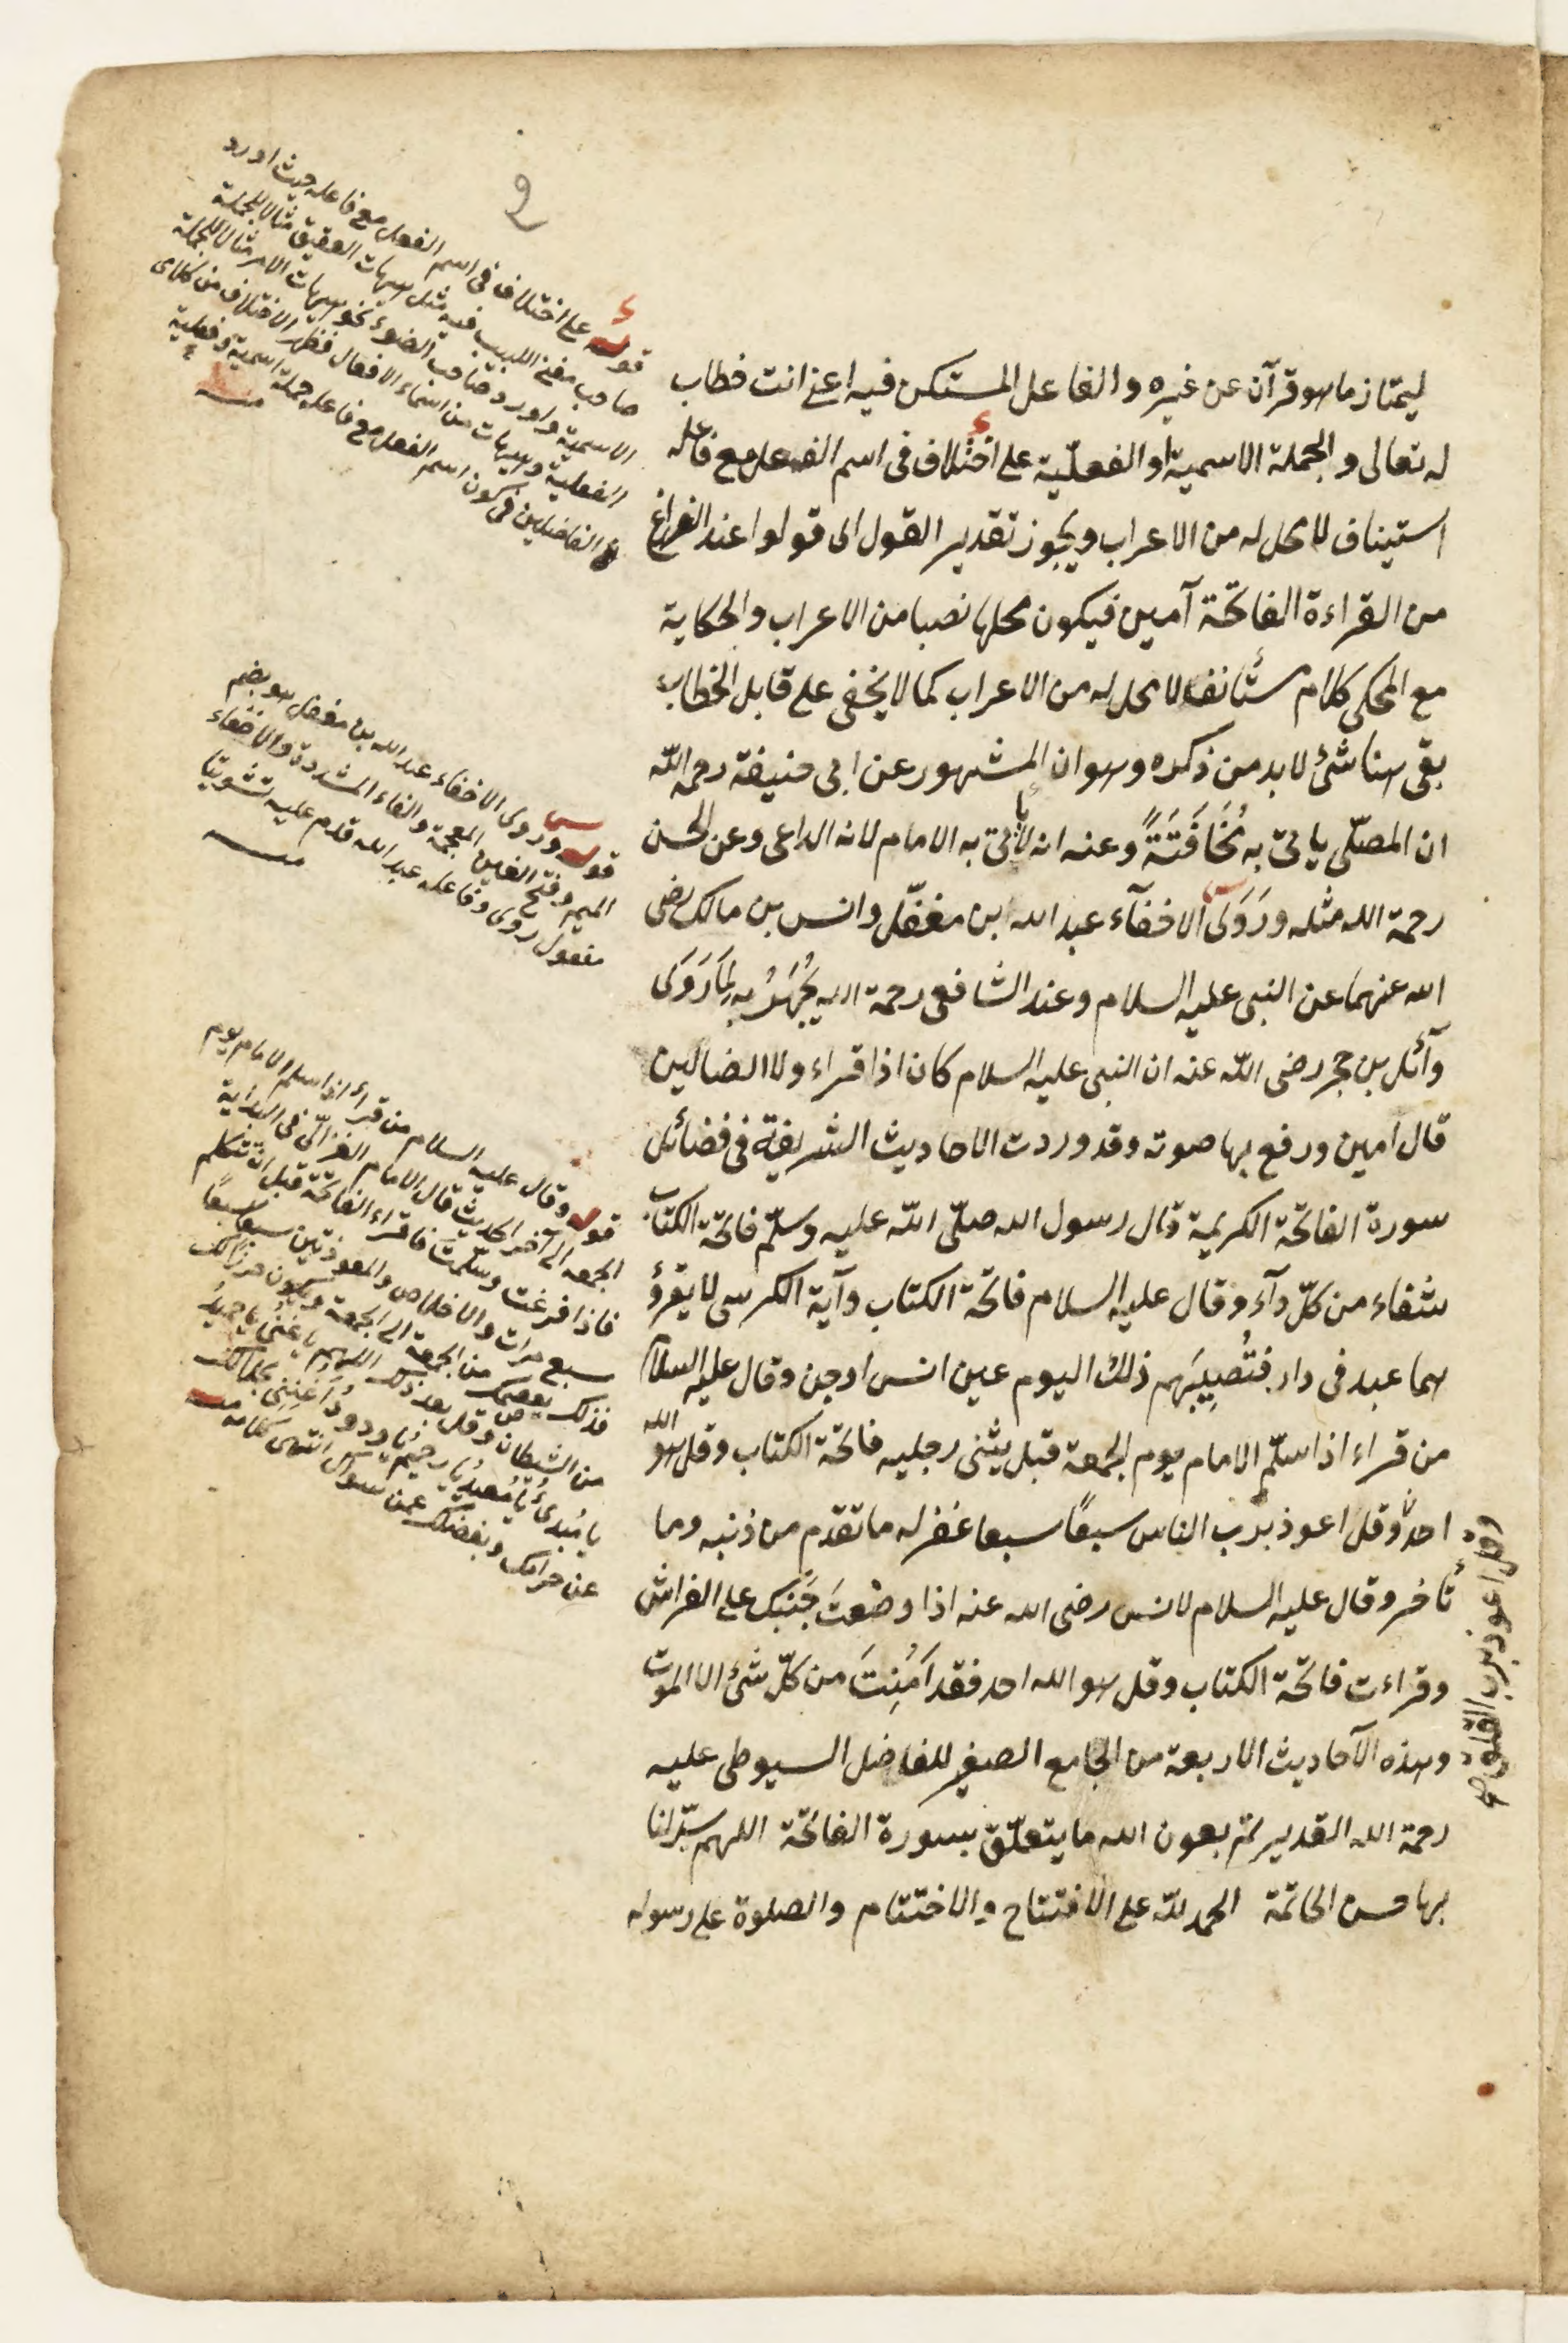 ليمتاز ما هو قرآن عن غيره والفاعل المستكن فيه اعنى انت خطاب
له تعالى والجملة الاسمية او الفعليّة على اختلاف فى اسم الفعل مع فاعله
استيناف لا محل له من الاعراب ويجوز تقدير القول اى قولوا عند الفراغ
من القراءة الفاتحة آمين فيكون محلها نصبا من الاعراب والحكاية
مع المحكى كلام مستأنف لا محل له من الاعراب كما لا يخفى على قابل الخطاب
بقى هنا شئ لا بد من ذكره وهو ان المشهور عن ابى حنيفة رحمه اللّه
ان المصلّى ياتى به مُخَافَتَةً وعنه انه لا يأتى به الامام لانه الداعى وعن الحسن
رحمة الله مثله ورَوَى الاخفآء عبد الله ابن مغفّل وانس بن مالك رضى
الله عنهما عن النبى عليه السلام وعند الشافعى رحمة الله يُجْهَرُ به لِمَا رَوَى
وآئل بن حجر رضى اللّه عنه ان النبى عليه السلام كان اذا قراء ولا الضالين
قال امين ورفع بها صوته وقد وردت الاحاديث الشريفة فى فضائل
سورة الفاتحة الكريمة قال رسول الله صلّى اللّه عليه وسلّم فاتحة الكتاب
شفاء من كلّ دآء وقال عليه السلام فاتحة الكتاب وآية الكرسى لا يقرؤ
هما عبد فى دار فتُصِيبَهم ذلك اليوم عين انس او جن وقال عليه السلام
من قراء اذا سلّم الامام يوم الجمعة قبل يثنى رجليه فاتحة الكتاب وقل هو الله
احد وقل اعوذ برب الناس سبعًا سبعا غفر له ما تقدم من ذنبه وما
وقل اعوذ برب الفلق صح
تأخر وقال عليه السلام لانس رضى الله عنه اذا وضعتَ جَنْبَك على الفراش
وقراءت فاتحة الكتاب وقل هو الله احد فقد اَمِنتَ من كلّ شئ الا الموت
وهذه الآحاديث الاربعة من الجامع الصغير للفاضل السيوطى عليه
رحمة الله القدير تم بعون الله ما يتعلّق بسورة الفاتحة اللهم يسّر لنا
بها حسن الخاتمة الحمد للّه على الافتتاح والاختتام والصلوة على رسوله
قوله على اختلاف فى اسم الفعل مع فاعله حيث اورد
صاحب مغنى اللبيب فيه مثل هيهات العقيق مثالا للجملة
الاسمية واورد صاحب الضوء نحو هيهات الامر مثالا للجملة
الفعلية وهيهات من اسماء الافعال فظهر الاختلاف من كلامى
الفاضلين فى كون اسم الفعل مع فاعله جملة اسمية وفعلية
منه
قوله وروى الاخفاء عبد الله بن مغفل هو بضم
الميم وفتح الغين المعجمة والفاء المشددة والاخفاء
مفعول روى وفاعله عبد الله قدم عليه تشويقا
منه
قوله وقال عليه السلام من قراء اذا سلم الامام يوم
الجمعه الى آخر الحديث قال الامام الغزالّى فى البداية
فاذا فرغت وسلّمتَ فاقراء الفاتحة قبل ان تتكلم
سبع مرات والاخلاص والمعوذتين سبعا سبعًا
فذلك يعصمك من الجمعة الى الجمعة ويكون حرزا لك
من الشيطان وقل بعد ذلك اللهم يا غنىُّ يا حميدُ
يا مُبدئُ يا مُعيدُ يا رحيمُ يا ودودُ اَغنِنِى بحلالك
عن حرامك وبفضلك عمن سواك انتهى كلامه منه